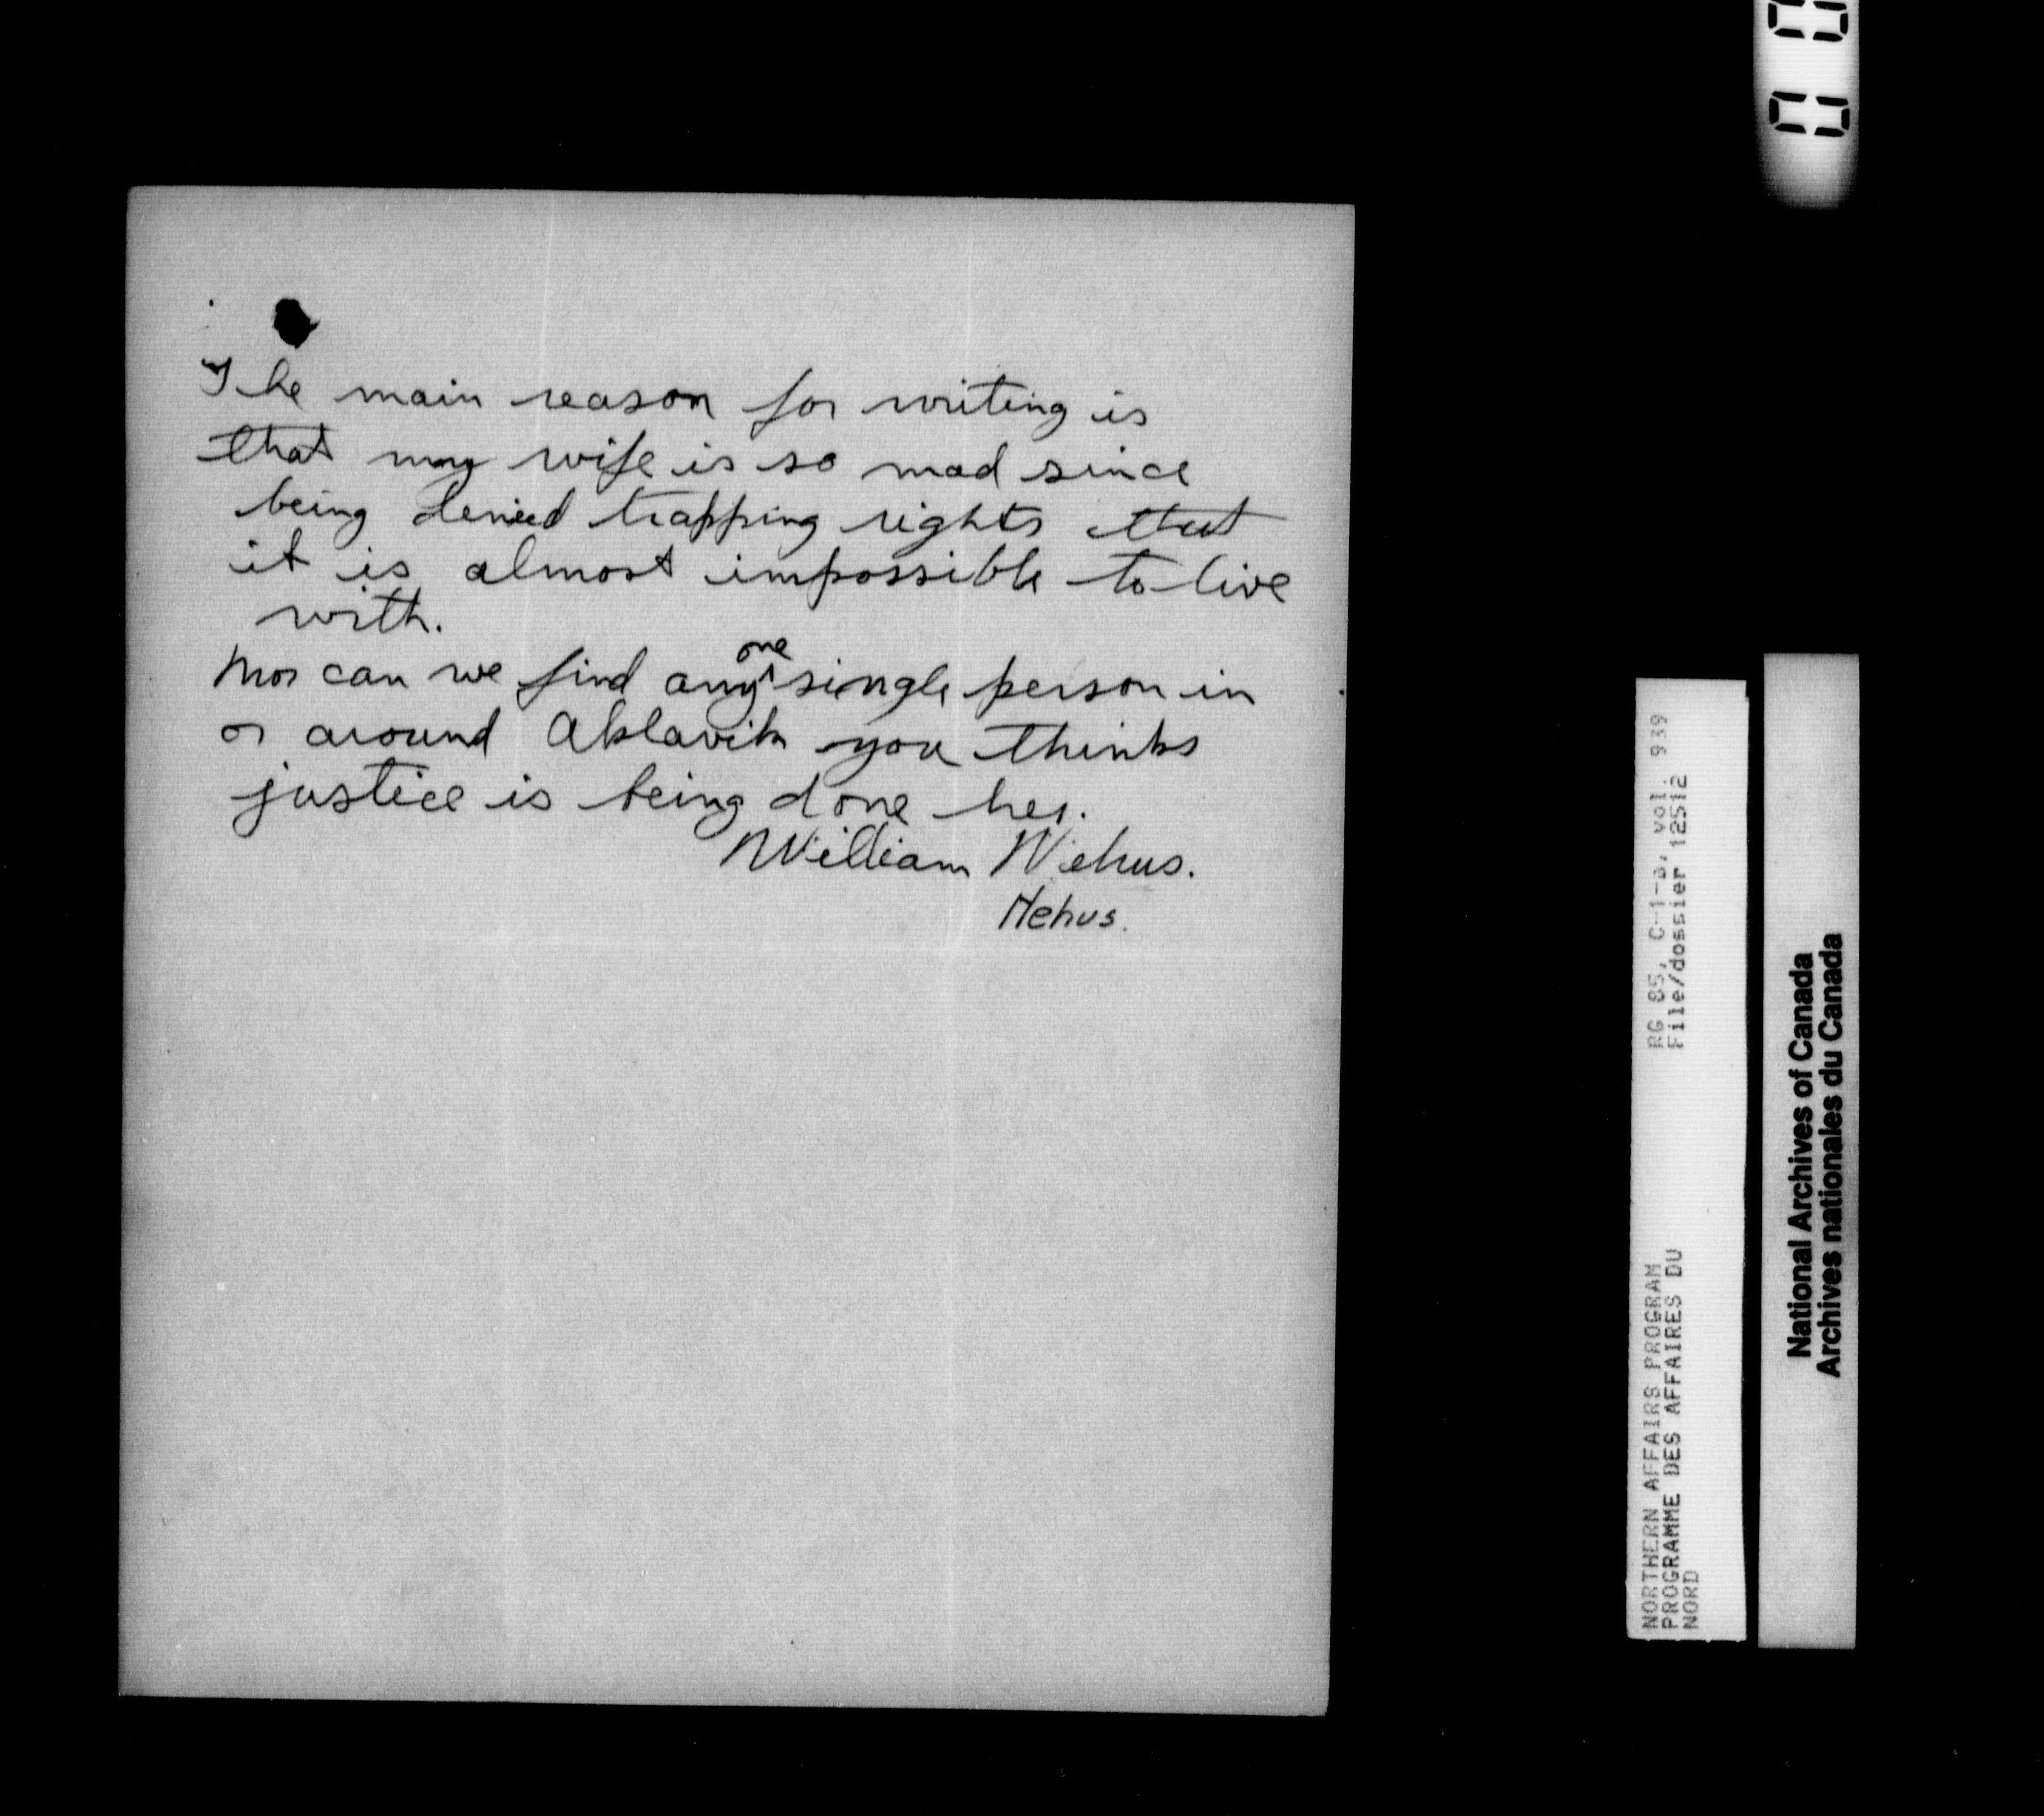 The main reason for writing is
that my wife is so mad since
being denied trapping rights that
it is almost impossible to live
with.
Nor can we find any one single person in
or around Aklavik you thinks
justice is being done her.
William Wehus.
Wehus.
RG 85, C-1-a, vol. 939
File/dossier 12512
NORTHERN AFFAIRS PROGRAM
PROGRAMME DES AFFAIRES DU
NORD
National Archives of Canada
Archives nationales du Canada